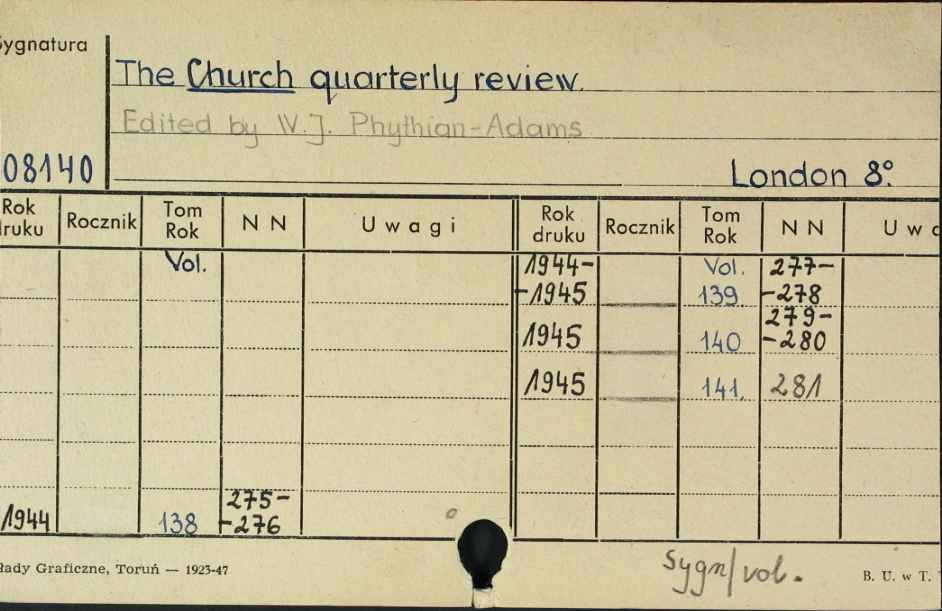 Sygnatura
The Church quarterly review.
Edited by W.J. Phythian-Adams
08140
London 8°.
Rok druku Rocznik Tom Rok N N Uwagi Rok druku Rocznik Tom Rok N N Uwa
Vol. 1944- Vol. 277-
-1945 139 -278
279-
1945 140 -280
1945 141. 281
275-
1944 138 -276
łady Graficzne, Toruń — 1923-47
Sygn/vol.
B. U. w T.